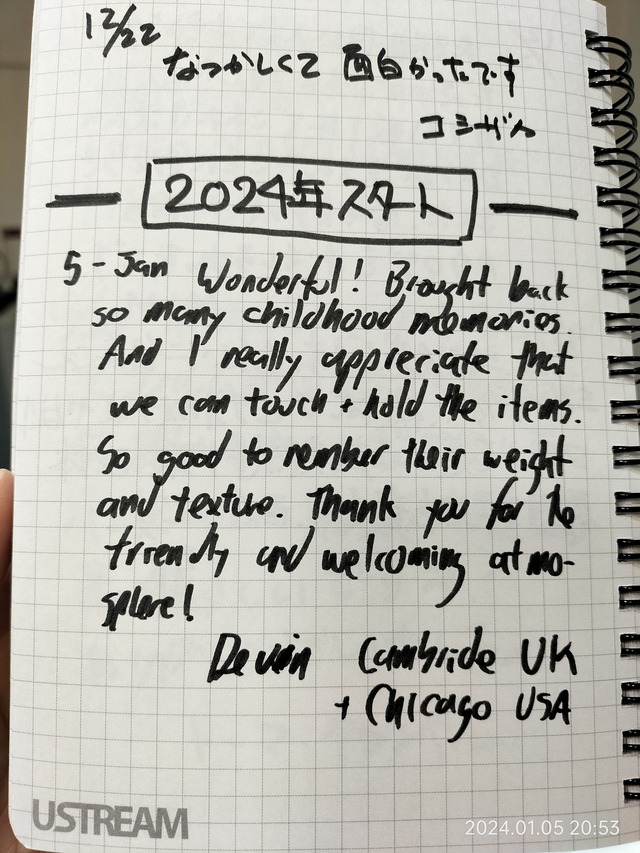 12/22
なつかしくて 面白かったです
コミーザん
2024年スタート
5-Jan Wonderful! Brought back
so many childhood memories.
And I really appreciate that
we can touch + hold the items.
So good to rember their weight
and texture. Thank you for the
friendly and welcoming atmo-
sphere!
Devin Cambride UK
+ Chicago USA
USTREAM
2024.01.05 20:53